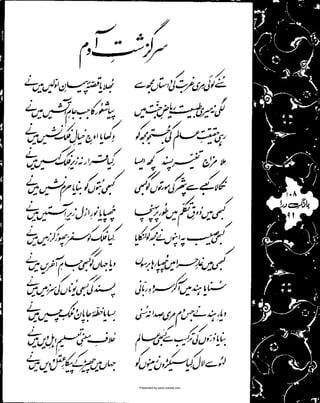 سرگزشتِ آدم
سُنے کوئی مری غربت کی داستاں مجھ سے بھلایا قصّۂ پیمانِ اوّلیں میں نے
لگی نہ میری طبیعت ریاضِ جنّت میں پیا شعور کا جب جامِ آتشیں میں نے
رہی حقیقتِ عالم کی جستجو مجھ کو دکھایا اوجِ خیالِ فلک نشیں میں نے
ملا مزاج تغیّر پسند کچھ ایسا کیا قرار نہ زیرِ فلک کہیں میں نے
نکالا کعبے سے پتھر کی مورتوں کو کبھی کبھی بتوں کو بنایا حرم نشیں میں نے
کبھی میں ذوقِ تکلّم میں طور پر پہنچا چھپایا نورِ ازل زیرِ آستیں میں نے
کبھی صلیب پہ اپنوں نے مجھ کو لٹکایا کیا فلک کو سفر، چھوڑ کر زمیں میں نے
کبھی میں غارِ حرا میں چھپا رہا برسوں دیا جہاں کو کبھی جامِ آخریں میں نے
سنایا ہند میں آ کر سرودِ ربّانی پسند کی کبھی یوناں کی سرزمیں میں نے
دیارِ ہند نے جس دم مری صدا نہ سنی بسایا خطّۂ جاپان و ملکِ چیں میں نے
بنایا ذرّوں کی ترکیب سے کبھی عالم خلافِ معنیِ تعلیمِ اہلِ دیں میں نے
لہو سے لال کیا سینکڑوں زمینوں کو جہاں میں چھیڑ کے پیکارِ عقل و دیں میں نے
۱۰۸
بانگِ درا
۹۲
Presented by www.ziaraat.com